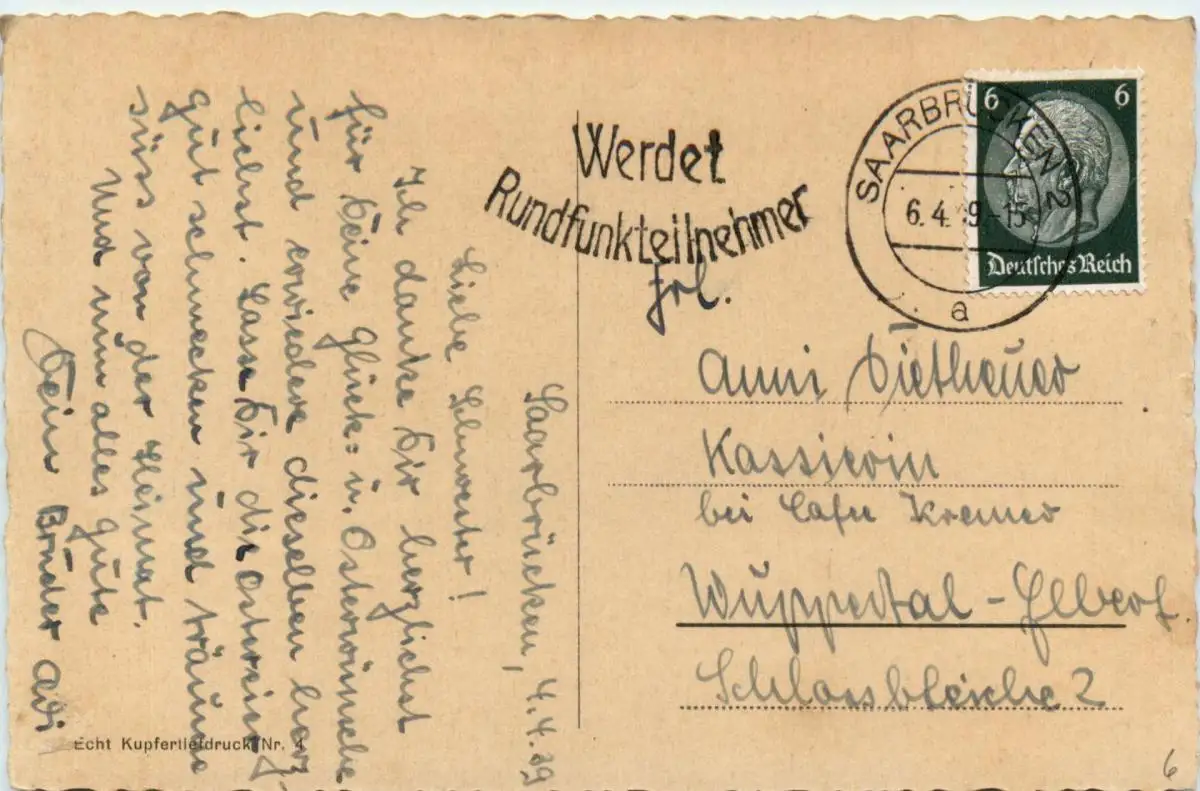 Saarbrücken, 4.4.39
Liebe Schwester!
Ich danke Dir herzlichst
für Deine Glück= u. Osterwünsche
und erwiedere dieselben herz
lichst. Lasse Dir die Ostereier
gut schmecken und träume
süss von der Heimat.
Und nun alles gute
Dein Bruder Adi
Echt Kupfertiefdruck Nr. 4
Werdet
Rundfunkteilnehmer
SAARBRÜCKEN 2
6.4.39-15
a
6 6
Deutsches Reich
Frl.
Anni Diethener
Kassierin
bei Cafee Kremer
Wuppertal-Elberf.
Schlossbleiche 2
6